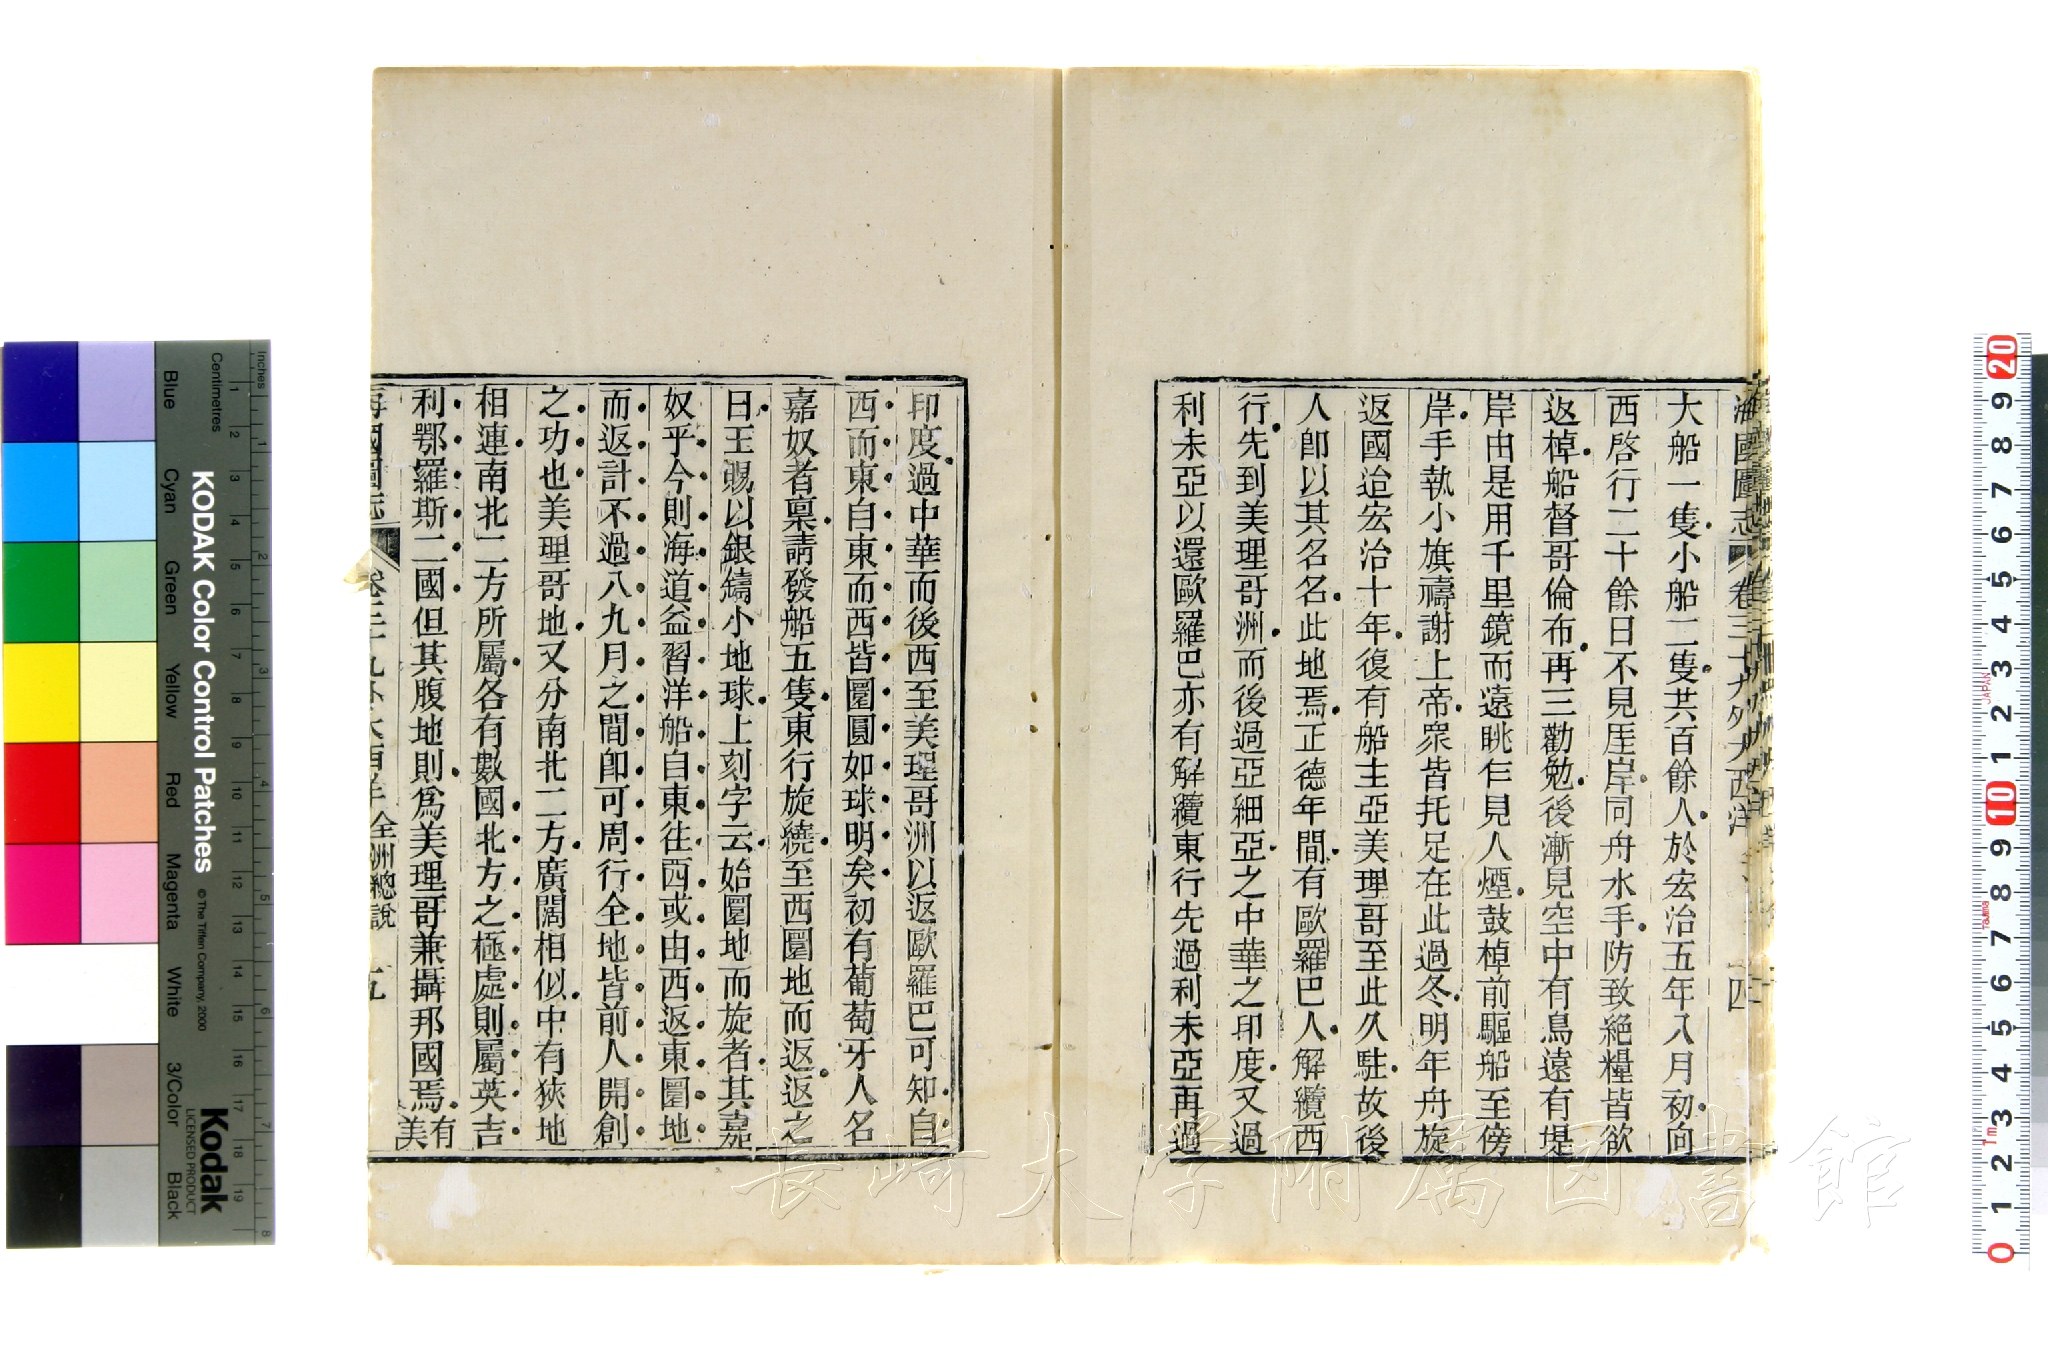 海國圖志 卷三十九 外大西洋 四
大船一隻小船二隻共百餘人於宏治五年八月初向
西啓行二十餘日不見厓岸同舟水手防致絕糧皆欲
返棹船督哥倫布再三勸勉後漸見空中有鳥遠有堤
岸由是用千里鏡而遠眺乍見人煙鼓棹前驅船至傍
岸手執小旗禱謝上帝眾皆托足在此過冬明年舟旋
返國迨宏治十年復有船主亞美理哥至此久駐故後
人卽以其名名此地焉正德年間有歐羅巴人解纜西
行先到美理哥洲而後過亞細亞之中華之印度又過
利未亞以還歐羅巴亦有解纜東行先過利未亞再過
印度過中華而後西至美理哥洲以返歐羅巴可知自
西而東自東而西皆圜圓如球明矣初有葡萄牙人名
嘉奴者稟請發船五隻東行旋繞至西圜地而返返之
日王賜以銀鑄小地球上刻字云始圜地而旋者其嘉
奴乎今則海道益習洋船自東往西或由西返東圜地
而返計不過八九月之間卽可周行全地皆前人開創
之功也美理哥地又分南北二方廣闊相似中有狹地
相連南北二方所屬各有數國北方之極處則屬英吉
利鄂羅斯二國但其腹地則爲美理哥兼攝邦國焉有
美
海國圖志 卷三十九 外大西洋 全洲總說
長崎大学附属図書館
KODAK Color Control Patches
© The Tiffen Company, 2000
Kodak
LICENSED PRODUCT
Inches
Centimetres
Blue
Cyan
Green
Yellow
Red
Magenta
White
3/Color
Black
1 2 3 4 5 6 7 8 9 10 11 12 13 14 15 16 17 18 19
1 2 3 4 5 6 7 8
20 9 8 7 6 5 4 3 2 1 10 9 8 7 6 5 4 3 2 1 0
JAPAN
1m